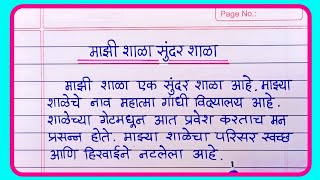 Page No.:
माझी शाळा सुंदर शाळा
माझी शाळा एक सुंदर शाळा आहे. माझ्या
शाळेचे नाव महात्मा गांधी विद्यालय आहे.
शाळेच्या गेटमधून आत प्रवेश करताच मन
प्रसन्न होते. माझ्या शाळेचा परिसर स्वच्छ
आणि हिरवाईने नटलेला आहे.